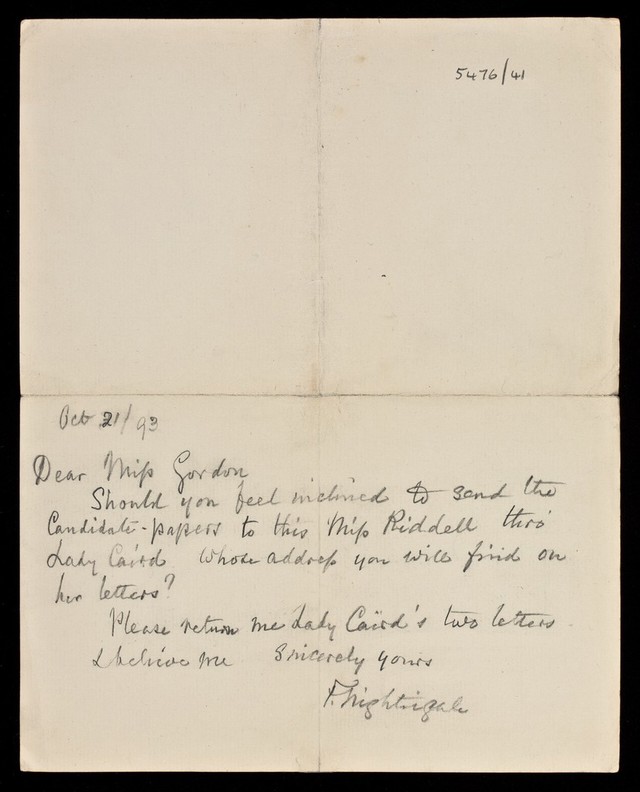 5476/41
Oct 21/93
Dear Miss Gordon
Should you feel inclined to send the
Candidate-papers to this Miss Riddell thro'
Lady Caird whose address you will find on
her letters?
Please return me Lady Caird's two letters
& believe me sincerely yours
F. Nightingale